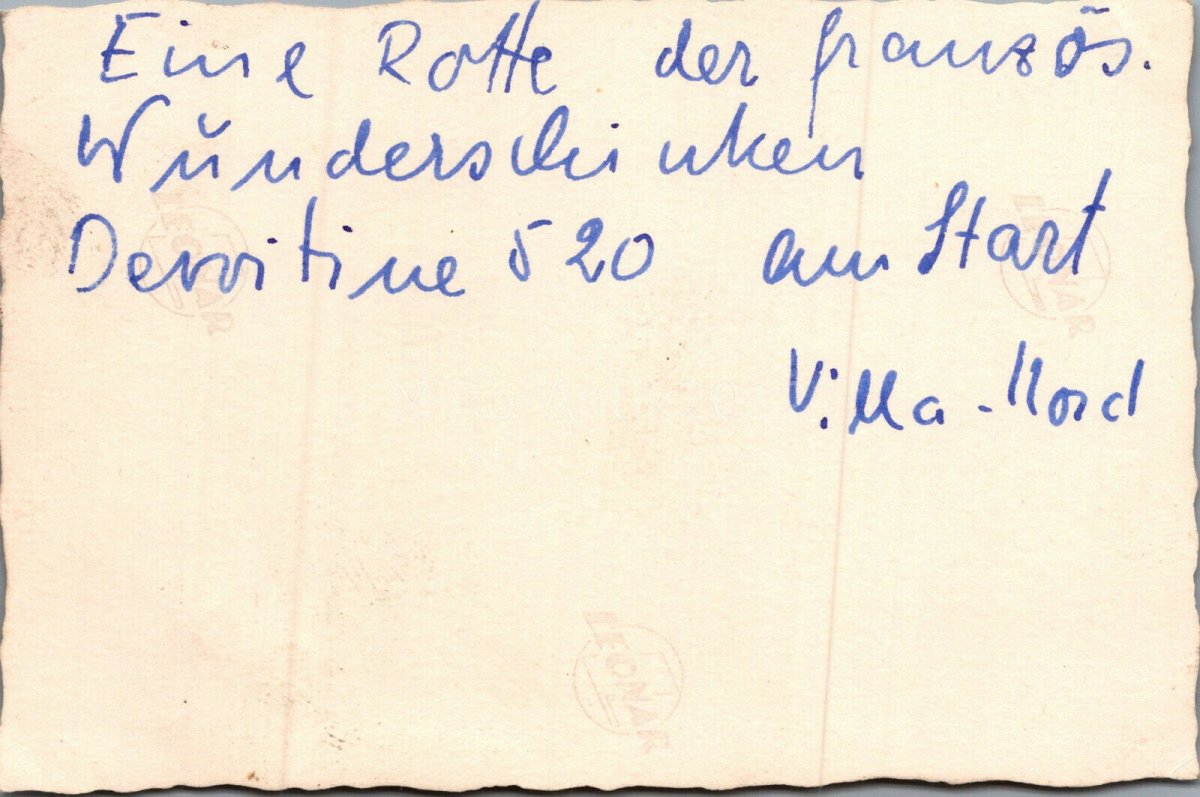 Eine Rotte der französ.
Wunderschinken
Devoitine 520 am Start
Villa-Nord
LEONAR
LEONAR
LEONAR